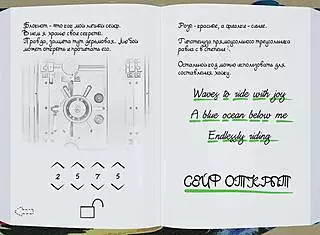 Блокнот - это как мой личный сейф.
В нем я храню свои секреты.
Правда, защита тут дерьмовая. Любой
может открыть и прочитать его.
2 5 7 5
Роза - красные, а фиалки - синие.
Гипотенуза прямоугольного треугольника
равна с в степени
Остальной код можно использовать для
составления хокку.
Waves to ride with joy
A blue ocean below me
Endlessly riding
СЕЙФ ОТКРЫТ